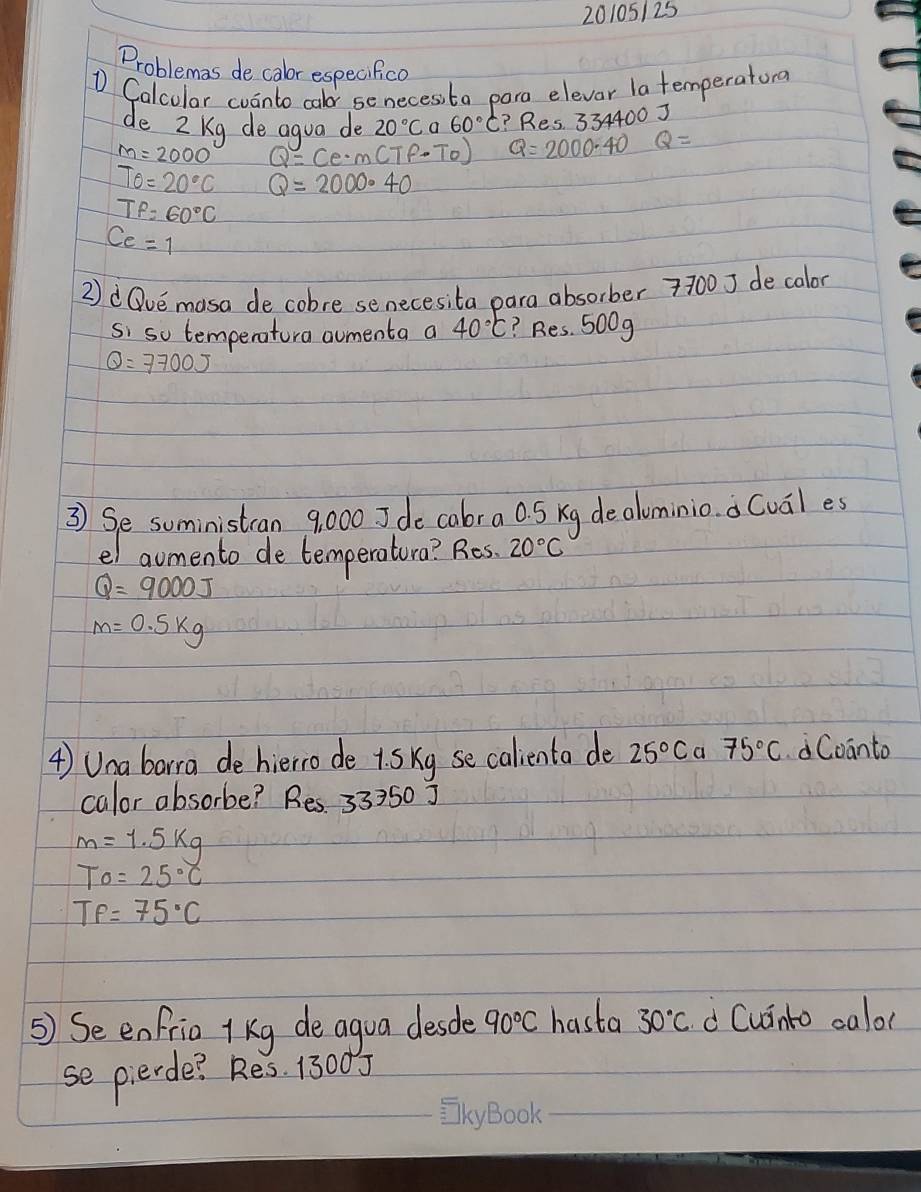 20/05/25
Problemas de calor especifico
1) Calcular cuánto calor se necesita para elevar la temperatura
de 2 Kg de agua de 20°C a 60°C? Res. 334400 J
m=2000 Q=Ce·m(Tf-To) Q=2000·40 Q=
To=20°C Q=2000·40
Tf=60°C
Ce=1
2) ¿Qué masa de cobre se necesita para absorber 7700 J de calor
si su temperatura aumenta a 40°C? Res. 500g
Q=7700J
3) Se suministran 9,000 J de calor a 0.5 Kg de aluminio. ¿Cuál es
el aumento de temperatura? Res. 20°C
Q=9000J
m=0.5Kg
4) Una barra de hierro de 1.5 Kg se calienta de 25°C a 75°C. ¿Cuánto
calor absorbe? Res. 33750 J
m=1.5 Kg
To=25°C
Tf=75°C
5) Se enfria 1 Kg de agua desde 90°C hasta 30°C. ¿Cuánto calor
se pierde? Res. 1300J
SkyBook